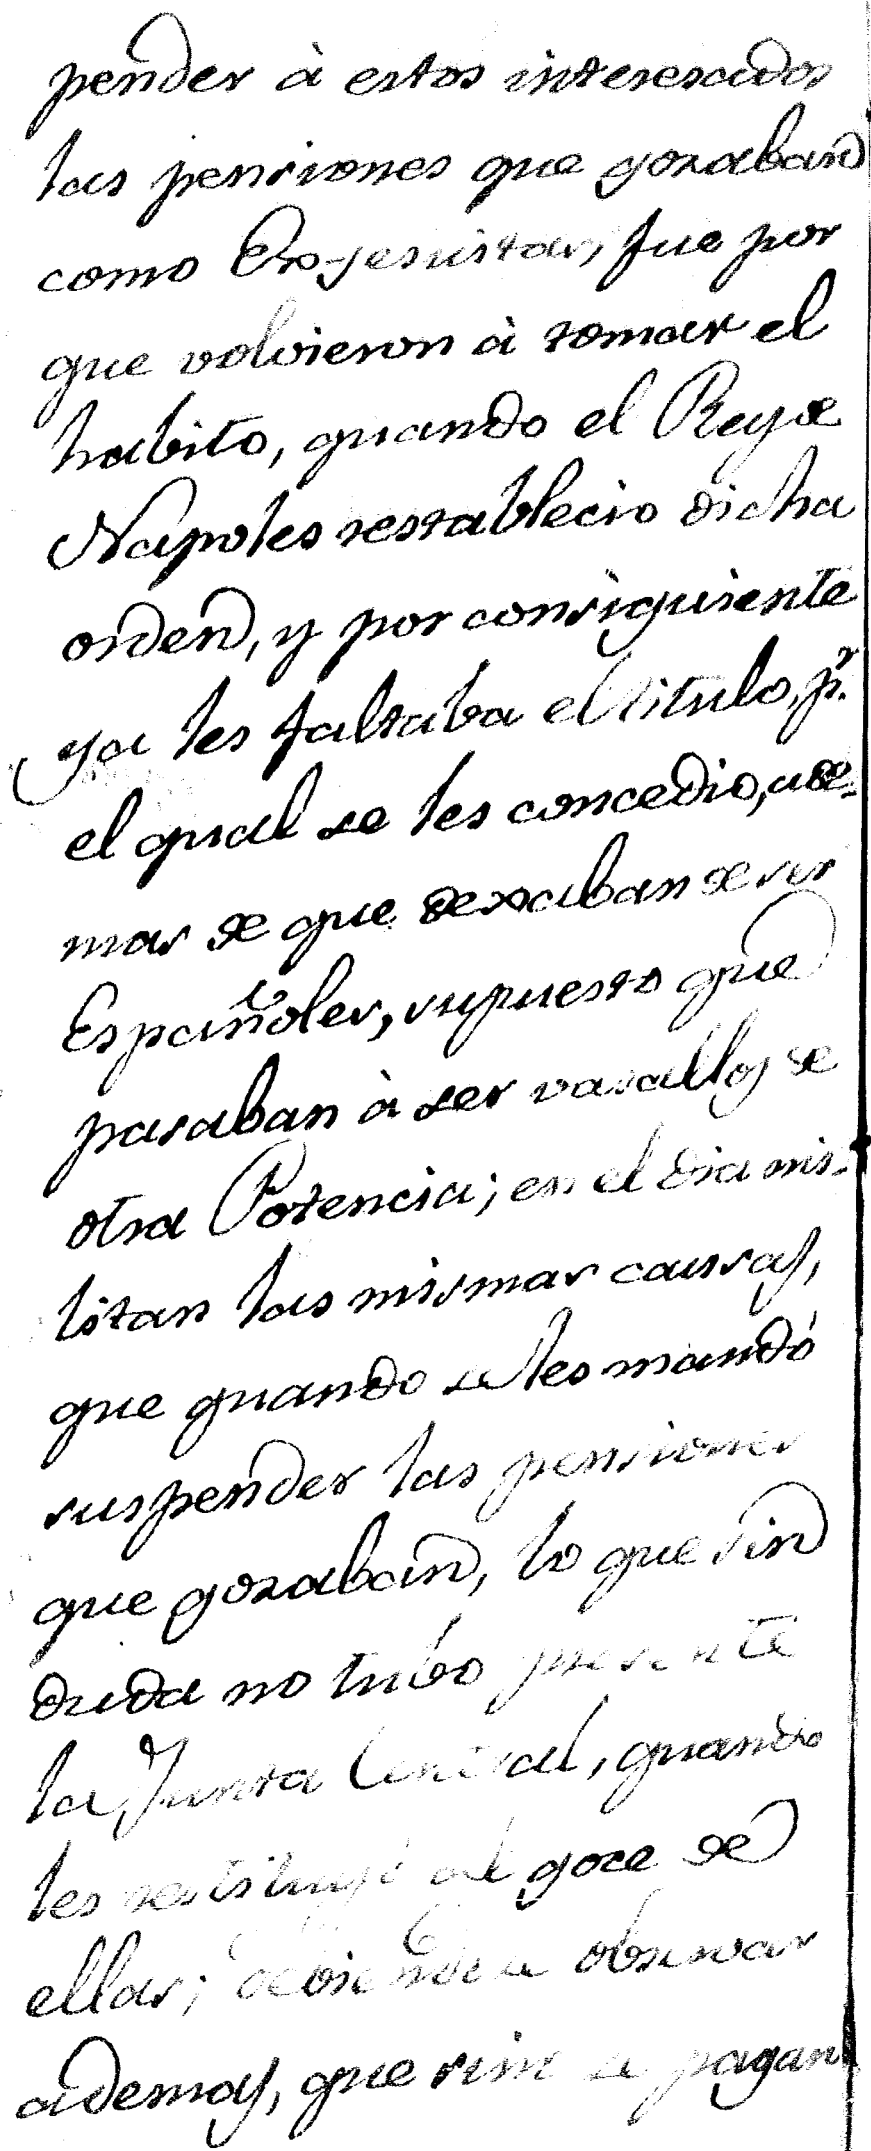 pender à estos interesados
las pensiones que gozaban
como Ex-jesuistas, fue por
que volvieron à tomar el
habito, quando el Rey de
Napoles restablecio dicha
orden, y por consiguiente
ya les faltaba el titulo, pr.
el qual se les concedio, ade-
mas de que dexaban de ser
Españoles, supuesto que
pasaban à ser vasallos de
otra Potencia; en el dia mi-
litan las mismas causas,
que quando se les mandó
suspender las pensiones
que gozaban, lo que sin
duda no tubo presente
la Junta Central, quando
les restituyó al goce de
ellas; debiendose observar
ademas, que si no se pagan